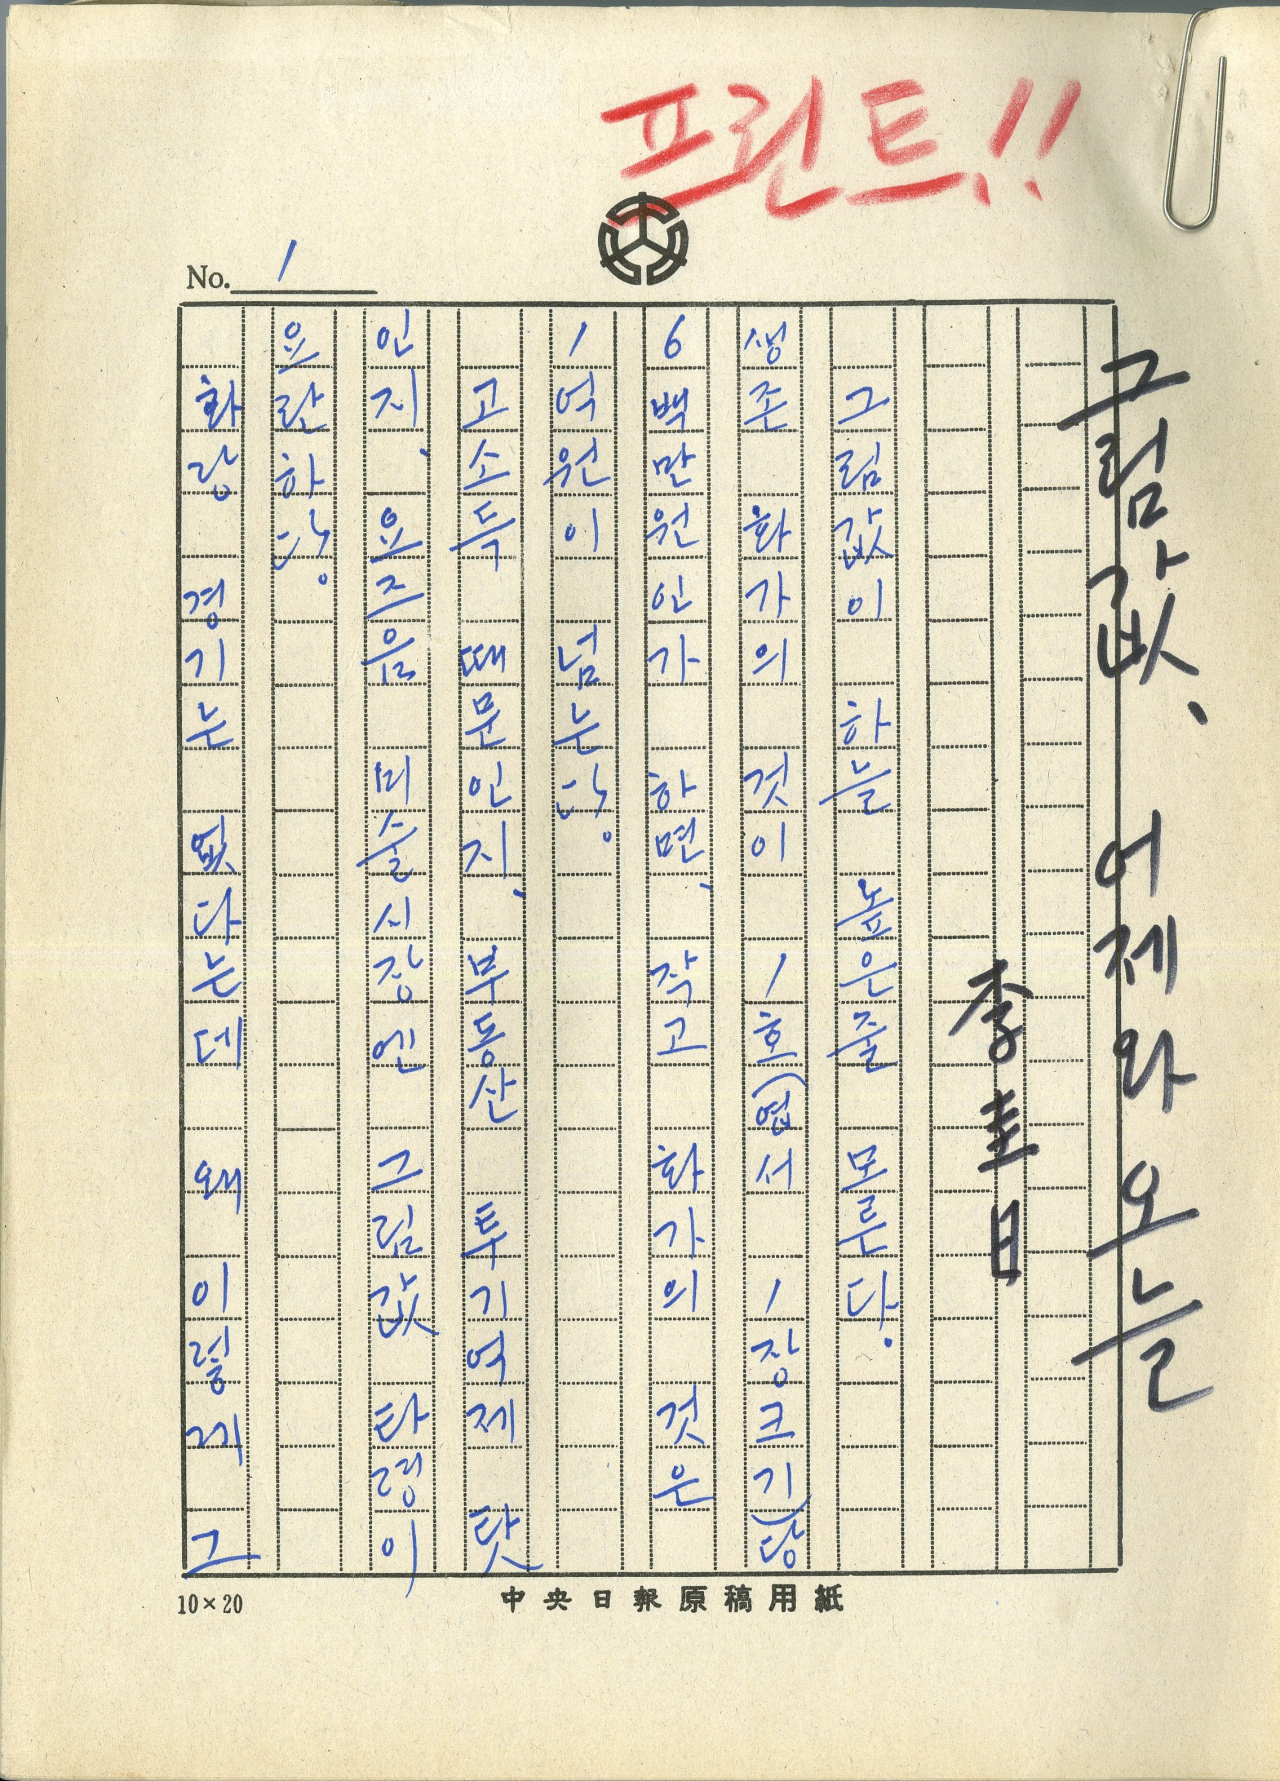 프린트!!
No. 1
그림값, 어제와 오늘
李圭日
그림값이 하늘 높은줄 모른다.
생존 화가의 것이 1호(엽서 1장크기)당
6백만원인가 하면, 작고 화가의 것은
1억원이 넘는다.
고소득 때문인지, 부동산 투기억제 탓
인지, 요즈음 미술시장엔 그림값 타령이
요란하다.
화랑 경기는 없다는데 왜 이렇게 그
10×20
中央日報原稿用紙